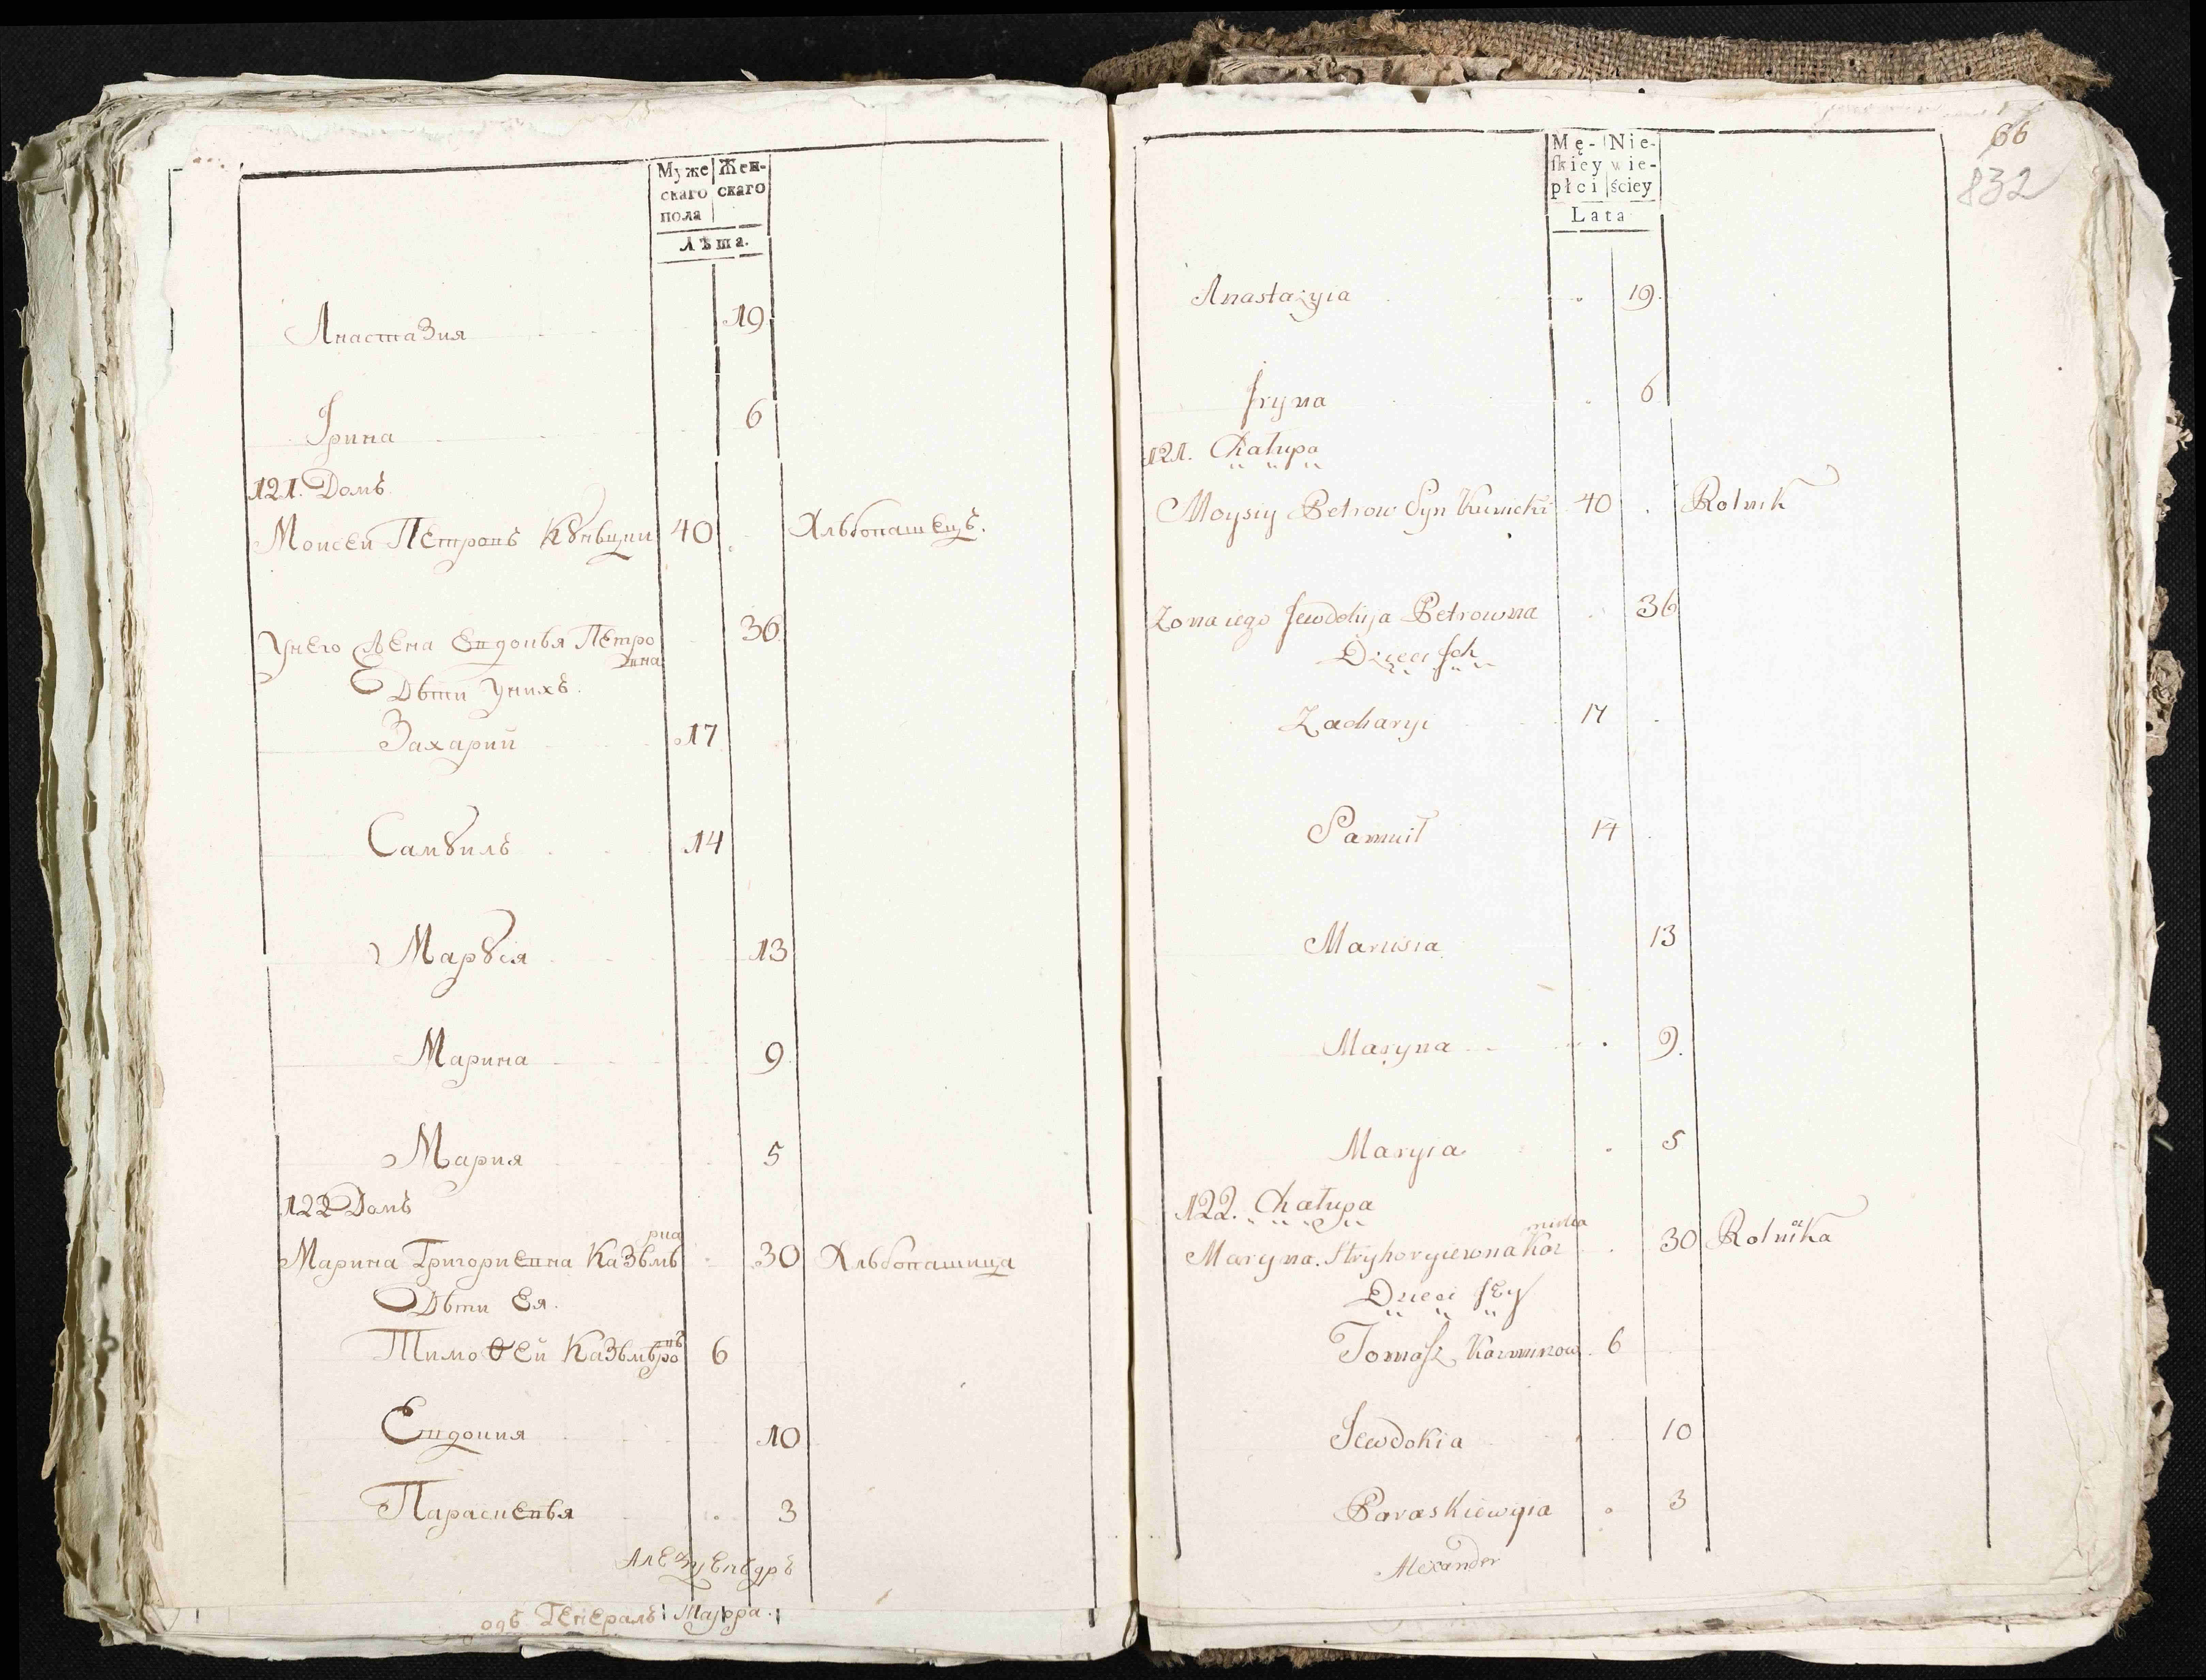 Муже Жен-
скаго скаго
пола
Лѣта.
Анастазия 19
Ірина 6
121. Домъ
Моисей Петровъ 40 Хлѣбопашецъ.
унего Жена Евдокѣя Петро 36
вна
Дѣти унихъ.
Захарий 17
Самȣилъ 14
Марȣся 13
Марина 9
Мария 5
122 Домъ
Марина Григориевна Казѣмѣ 30 Хлѣбопашица
рка
Дѣти Ея.
Тимоѳей Казѣмѣро 6
въ
Евдокия 10
Параскевѣя 3
Алезȣендръ
одъ Генералъ Маȷора.
66
832
Mę- Nie-
ſkiey wie-
płci ściey
Lata
Anastazyia 19.
Jryna 6
121. Chałupa
Moysiy Petrow Syn Kunicki 40 Rolnik
Zona iego Jewdokija Petrowna 36
Dzieci Jch
Zacharyi 17
Samuił 14
Marusia 13
Maryna 9.
Maryia 5
122. Chałupa
Maryna Hryhoryiewna Kaz 30 Rolnička
Dzieci Jey
Tomaſz 6
Jewdokia 10
Paraskiewyia 3
Alexander